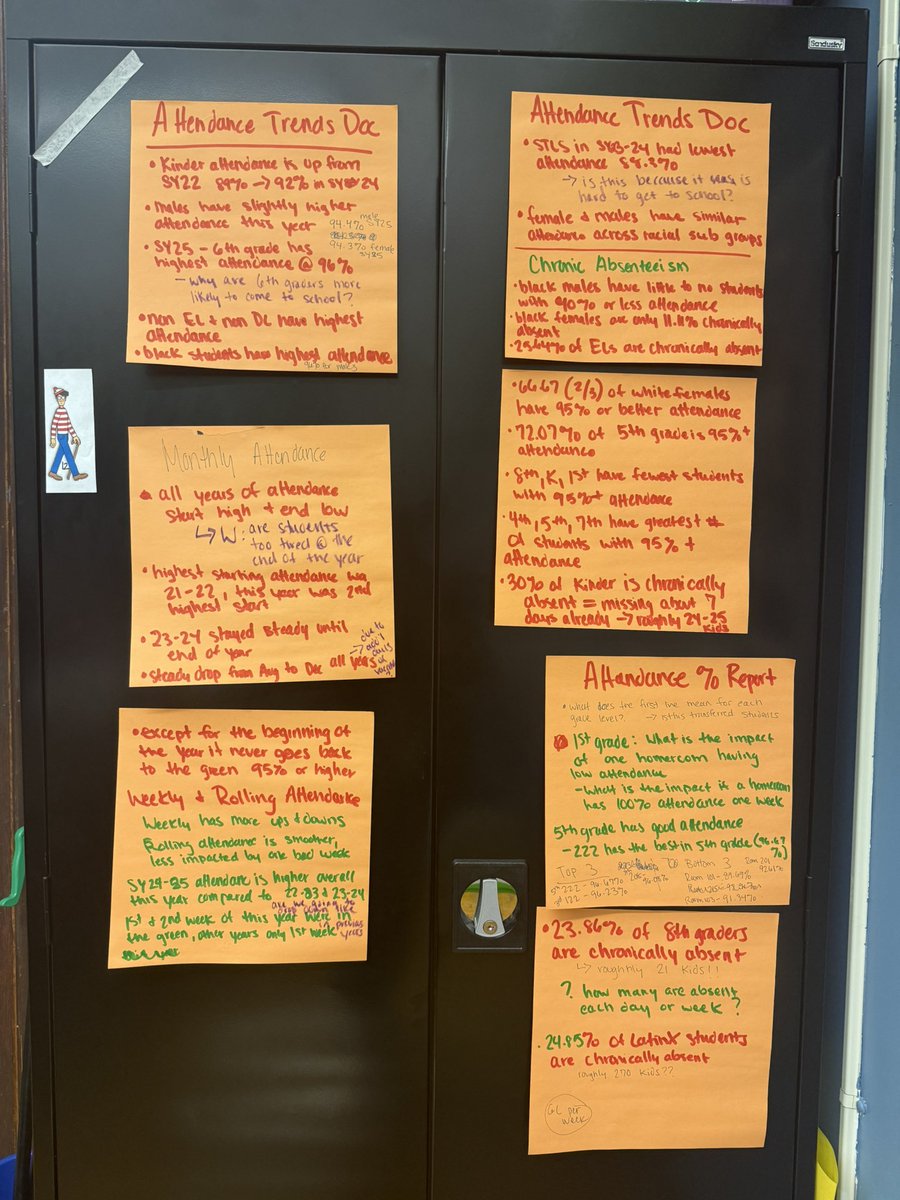 Sandusky
Attendance Trends Doc
• Kinder attendance is up from
SY22 89% → 92% in SY 24
• males have slightly higher
attendance this year
94.4% male SY25
94.3% female
SY25
• SY25 - 6th grade has
highest attendance @ 96%
- why are 6th graders more
likely to come to school?
• non EL + non DL have highest
attendance
• black students have highest attendance
Monthly Attendance
• all years of attendance
start high + end low
↳ W: are students
too tired @ the
end of the year
• highest starting attendance wa
21-22, this year was 2nd
highest start
• 23-24 stayed steady until
end of year
• steady drop from Aug to Dec all years
→ due to
• except for the beginning of
the year it never goes back
to the green 95% or higher
Weekly + Rolling Attendance
Weekly has more ups + downs
Rolling attendance is smoother,
less impacted by one bad week
SY24-25 attendance is higher overall
this year compared to 22-23 + 23-24
are we going to
drop down like
in previous
years
1st + 2nd week of this year were in
the green, other years only 1st week
Attendance Trends Doc
• STLS in SY23-24 had lowest
attendance 88.8%
→ is this because it is
hard to get to school?
• female + males have similar
attendance across racial sub groups
Chronic Absenteeism
• black males have little to no students
with 90% or less attendance
• black females are only 11.11% chronically
absent
• 25.64% of ELs are chronically absent
• 66.67 (2/3) of white females
have 95% or better attendance
• 72.07% of 5th grade is 95%+
attendance
• 8th, K, 1st have fewest students
with 95%+ attendance
• 4th, 5th, 7th have greatest #
of students with 95% +
attendance
• 30% of Kinder is chronically
absent = missing about 7
days already → roughly 24-25
kids
Attandance % Report
• what does the first line mean for each
grade level? → is this transferred students
1st grade: What is the impact
of one homeroom having
low attendance
- What is the impact if a homeroom
has 100% attendance one week
5th grade has good attendance
- 222 has the best in 5th grade (96.67
%)
Top 3
222 - 96.67%
122 - 96.23%
Bottom 3
Room 201
• 23.86% of 8th graders
are chronically absent
↳ roughly 21 kids!!
? how many are absent
each day or week?
• 24.85% of Latinx students
are chronically absent
roughly 270 kids??
GL per
week